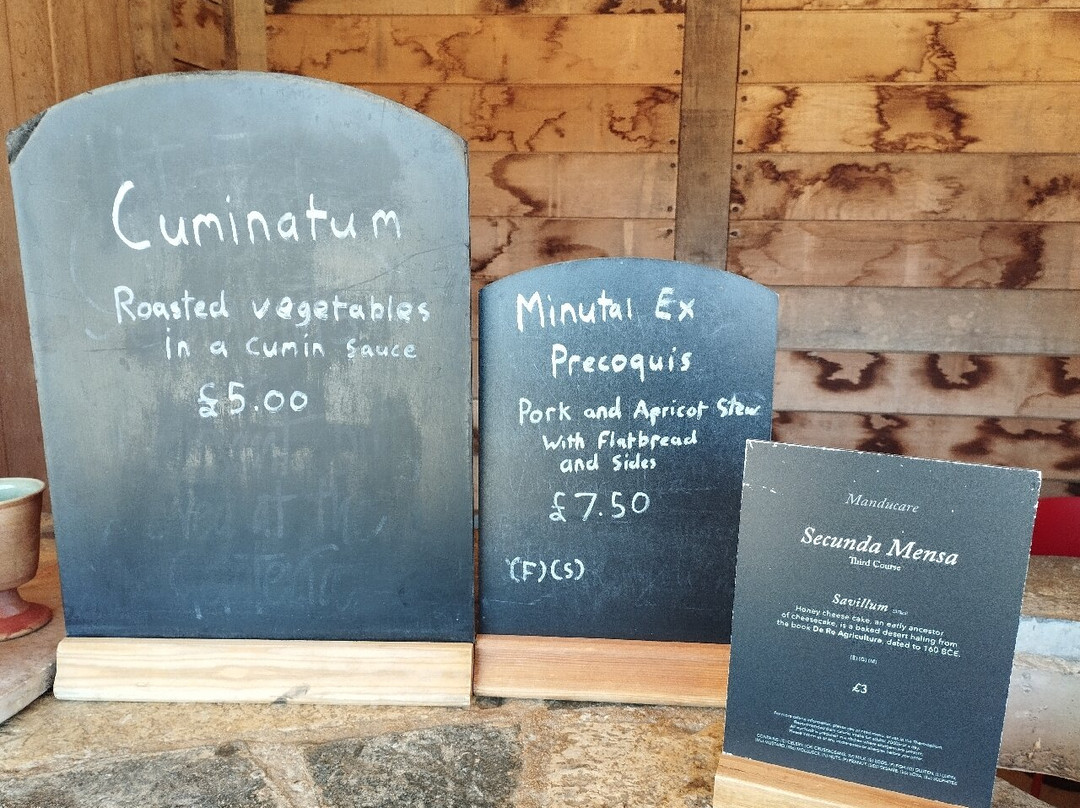 Cuminatum
Roasted vegetables
in a cumin sauce
£5.00
Minutal Ex
Precoquis
Pork and Apricot Stew
With Flatbread
and Sides
£7.50
(F)(S)
Manducare
Secunda Mensa
Third Course
Savillum
Honey cheese cake, an early ancestor
of cheesecake, is a baked desert hailing from
the book De Re Agriculture, dated to 160 BCE.
£3